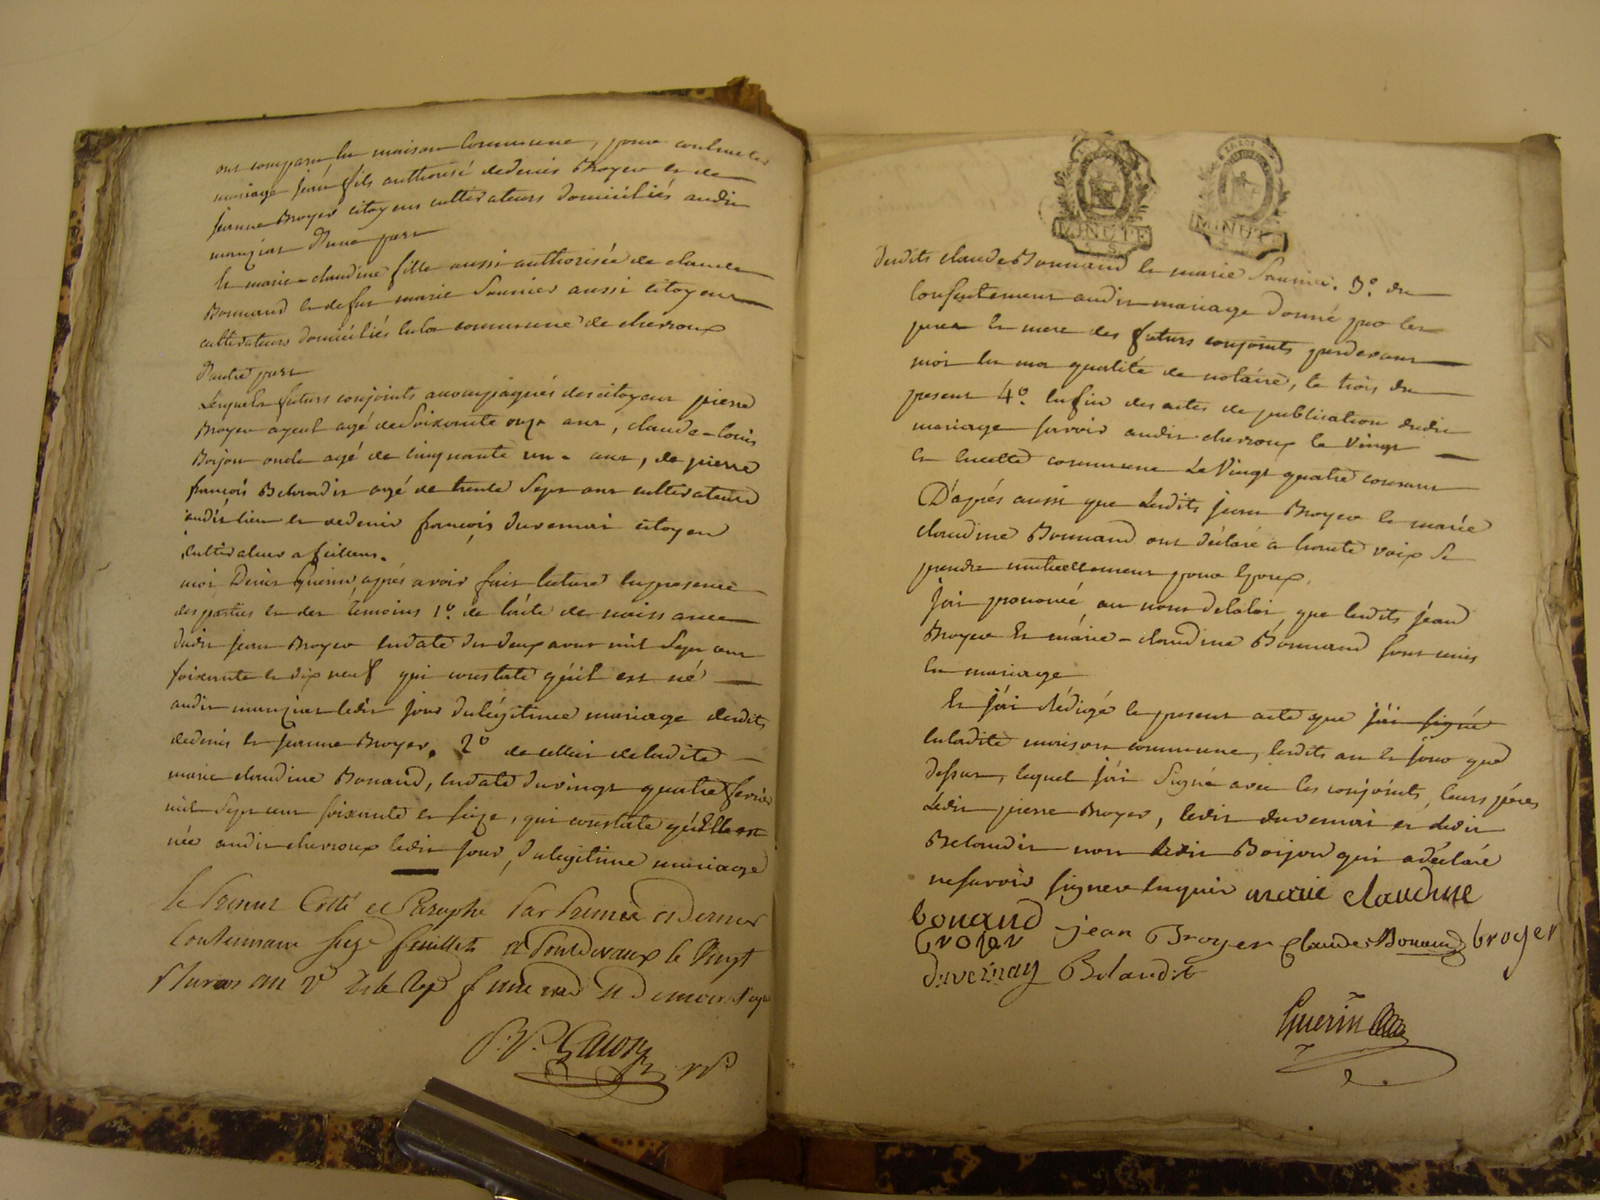 ont comparu en maison commune, pour contracter
mariage jean fils authorisé de denis Broyer et de
jeanne Broyer citoyens cultivateurs domiciliés audit
manziat D'une part
Et marie-claudine fille aussi authorisée de claude
Bonnand et de fue marie Saunier aussi citoyens
cultivateurs domiciliés en la commune de chevroux
D'autre part
Lesquels futurs conjoints accompagnés des citoyens pierre
Broyer ayeul agé de soixante onze ans, claude-louis
Boijon oncle agé de cinquante un ans, de pierre
françois Belaudit agé de trente Sept ans cultivateurs
audit lieu et de denis françois duvernai citoyen
cultivateur a feillens.
moi Denis Guerin après avoir fait lecture en presence
des parties et des témoins 1º. de l'acte de naissance
dudit jean Broyer en date du deux aout mil Sept cent
soixante et dix neuf qui constate qu'il est né
audit manziat ledit jour du légitime mariage desdits
dedenis et jeanne Broyer. 2º de celui de ladite
marie claudine Bonand, en date du vingt quatre fevrier
mil Sept cent soixante et seize, qui constate qu'Elle est
née audit chevroux ledit jour, du legitime mariage
le Present Cotté et Paraphé Par Premier et Dernier
Contennant seize feuillets a Pontdevaux le Vingt
an 2e de la Rep
MINUTE
MINUTE
desdits claude Bonnand et marie Saunier. 3º. du
Consentement audit mariage donné par les
peres et mere des futurs conjoints pardevant
moi en ma qualité de notaire, le trois du
present 4º. enfin des actes de publication dudit
mariage savoir audit chevroux le Vingt
et en cette commune Le Vingt quatre courant
D'après aussi que Lesdits jean Broyer et marie
claudine Bonnand ont déclaré a haute voix se
prendre mutuellement pour Epoux.
J'ai prononcé au nom de la loi que lesdits jean
Broyer Et marie-claudine Bonnand sont unis
en mariage
Et j'ai rédigé le present acte que j'ai signé
en ladite maison commune, lesdits an et jour que
dessus, lequel j'ai Signé avec les conjoints, leurs péres
Ledit pierre Broyer, ledit duvernai et ledit
Belaudit non ledit Boijon qui a déclaré
ne savoir signer enquis marie claudine
bonand
broyer jean Broyer Claude Bonnand broyer
Duvernay Belaudit
Guerin